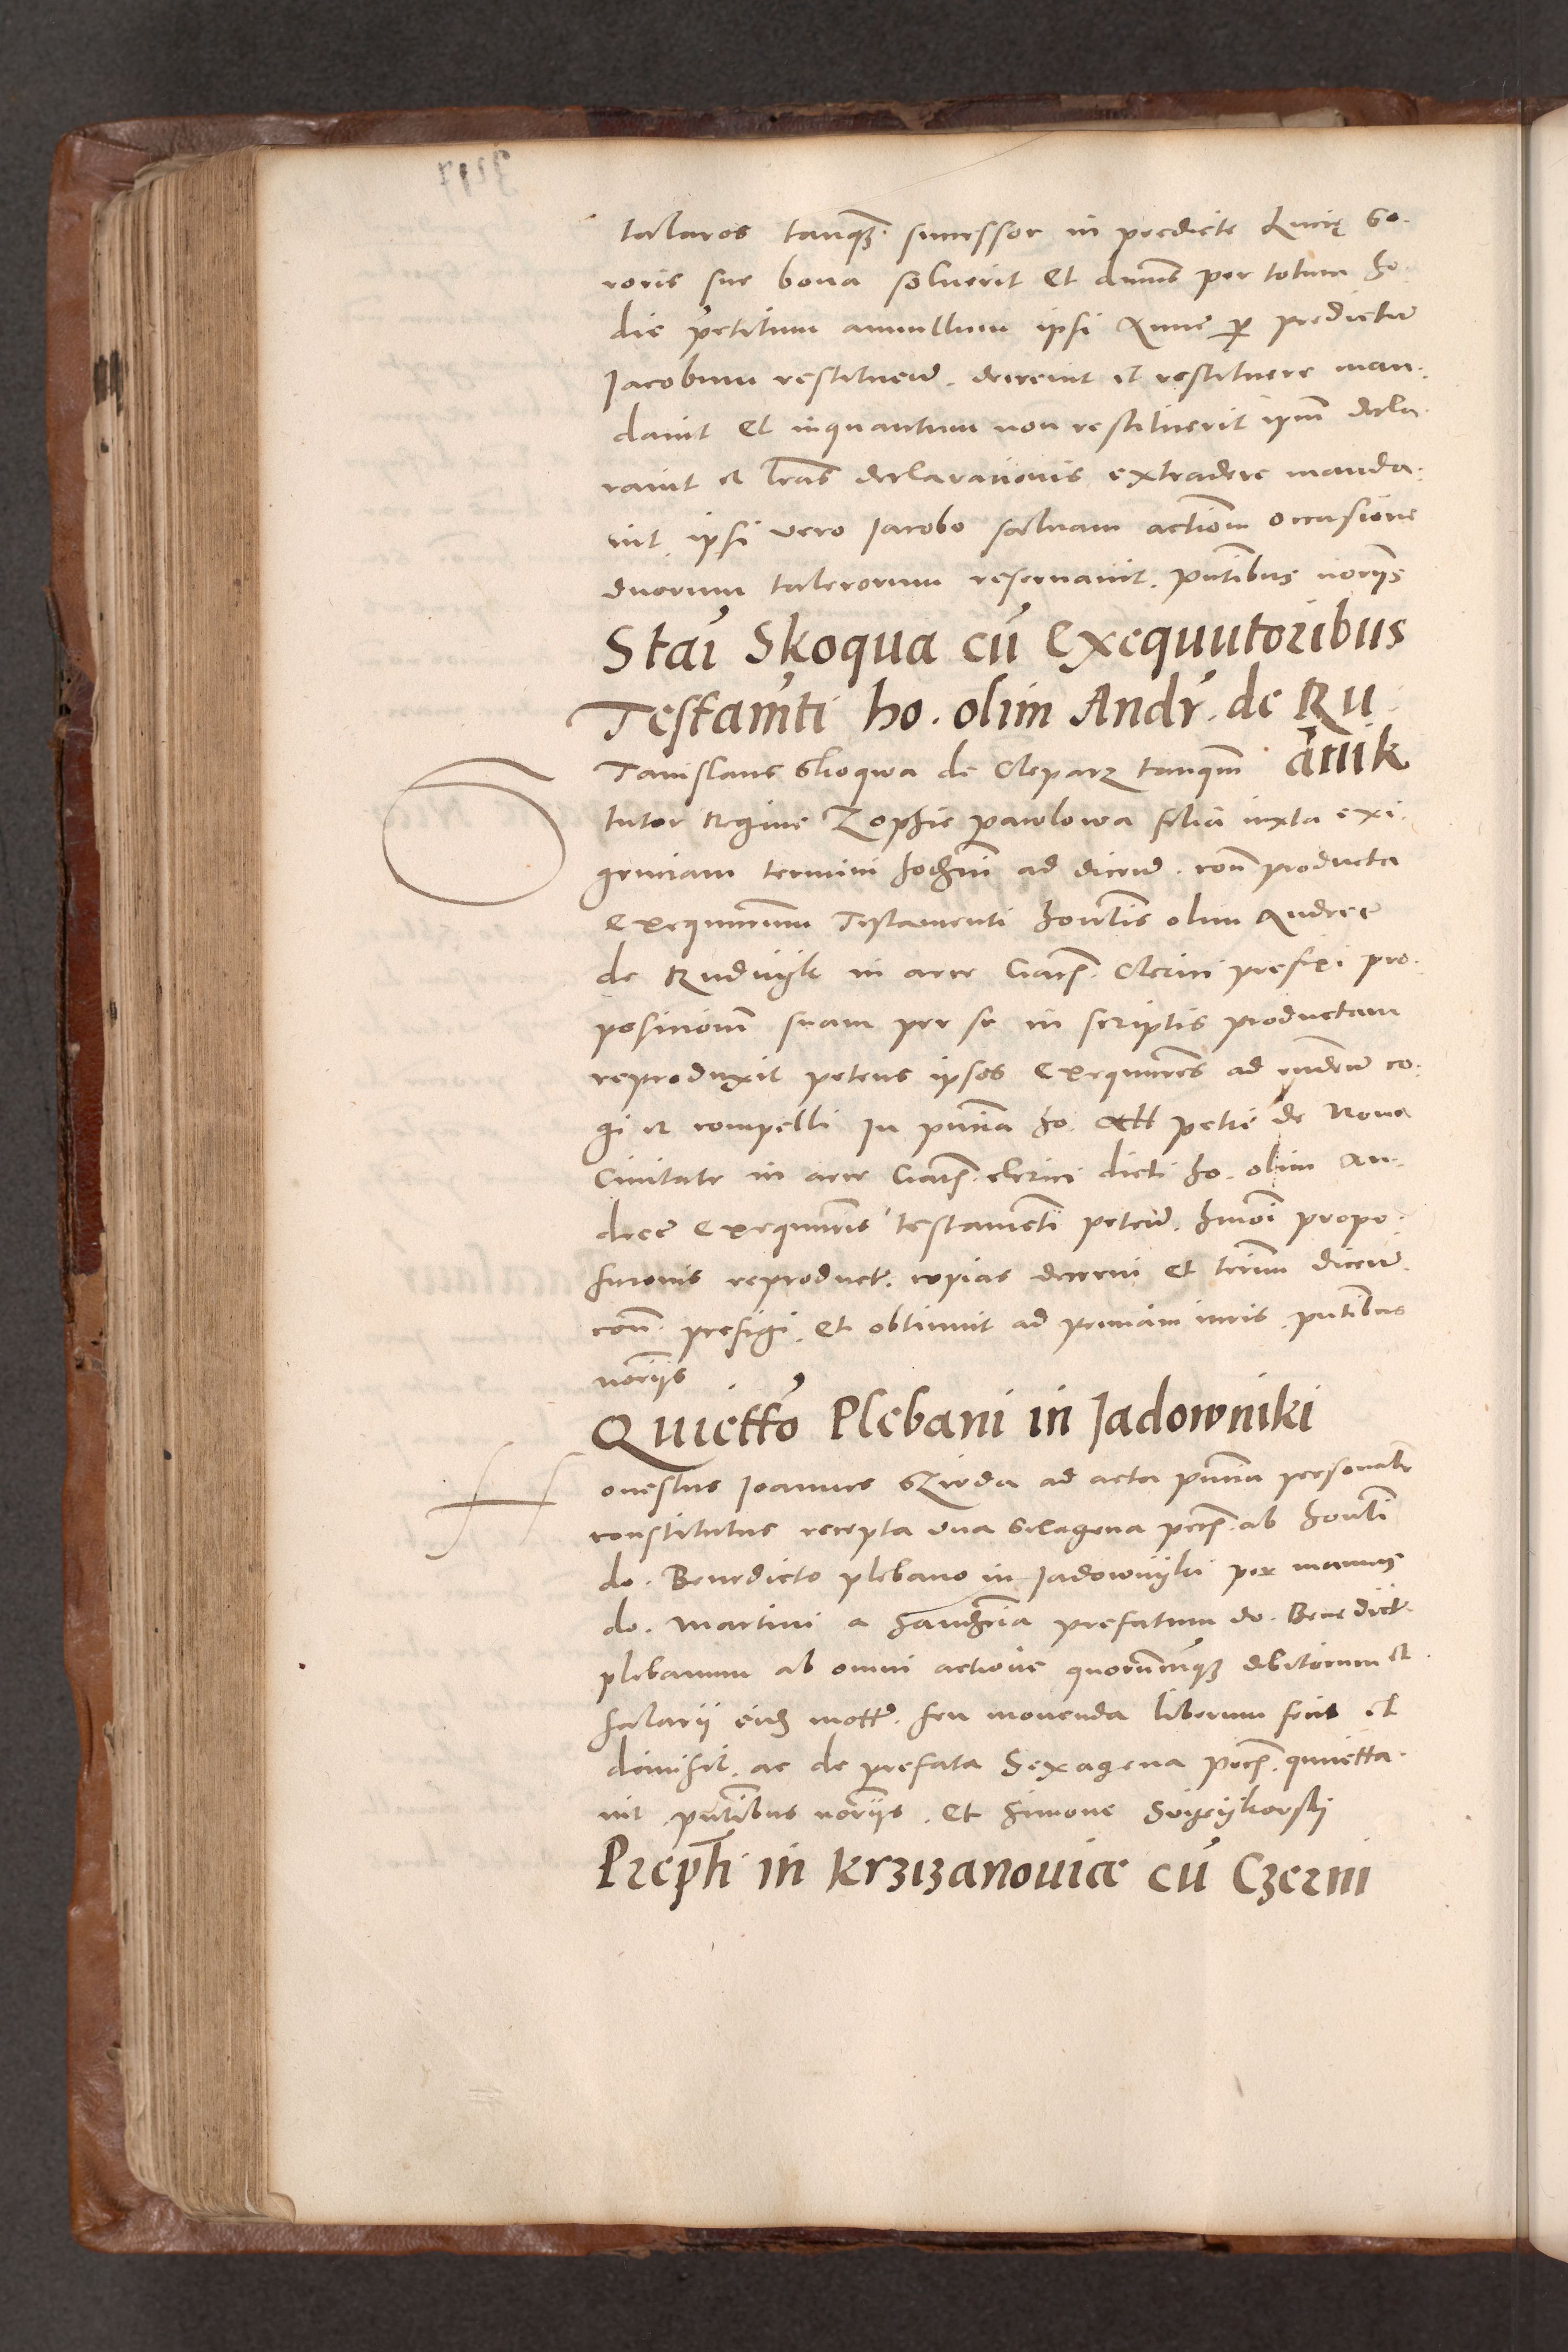 talaros tanqȝ. successor in predicte Lucię So.
roris sue bona soluerit Et annus per totum ho.
die petitum annullum ipsi Anne ꝑ predictū
Jacobum restituend. decreuit et restituere man.
dauit Et inquantum non restituerit ipm̄ decla.
rauit et lr̄as declarationis extradere manda.
uit, ipsi vero Jacobo saluam actiōm occasione
duorum talerorum reseruauit. pn̄tibus norijs
Stai Skoqua cū Exequutoribus
Testam̄ti ho. olim Andr̄. de Ru
Stanislaus Skoqwa de Cleparz tanqm̄
tutor Regine Zophie pawlowa filia iuxta exi.
genciam termini hodierni ad dicend. con̄ producta
Exequutorum Testamenti hon̄lis olim Andree
de Rudnyk in arce Crac̄. Clerici prefixi pro.
posiciom̄ suam per se in scriptis productam
reproduxit petens ipsos Exequutores ad rn̄dend co.
gi et compelli In pn̄cia ho. petri de Noua
Ciuitate in arce Crac̄. clerici dicti ho. olim An.
dree Exequutoris testamenti petend. hm̄oi propo.
sicionis reproduct. copias decerni Et term̄ dicend.
con̄. prefigi. Et obtinuit ad primam iuris. pn̄tibus
norijs
Quietto Plebani in Jadowniki
Honestus Joannes ad acta pn̄cia personalr̄
constitutus recepta vna Sexagena pec̄. ab hon̄li
do. Benedicto plebano in Jadownyki per manus
do. Martini a prefatum do. Benedict.
plebanum ab omni actione quorumcūqȝ debitorum et
salarij eidȝ mott. seu mouenda liberum fecit et
dimisit. ac de prefata Sexagena pec̄. quuietta.
uit pn̄tibus norijs. Et Simone
Prepti in Krzizanouice cū Czerni